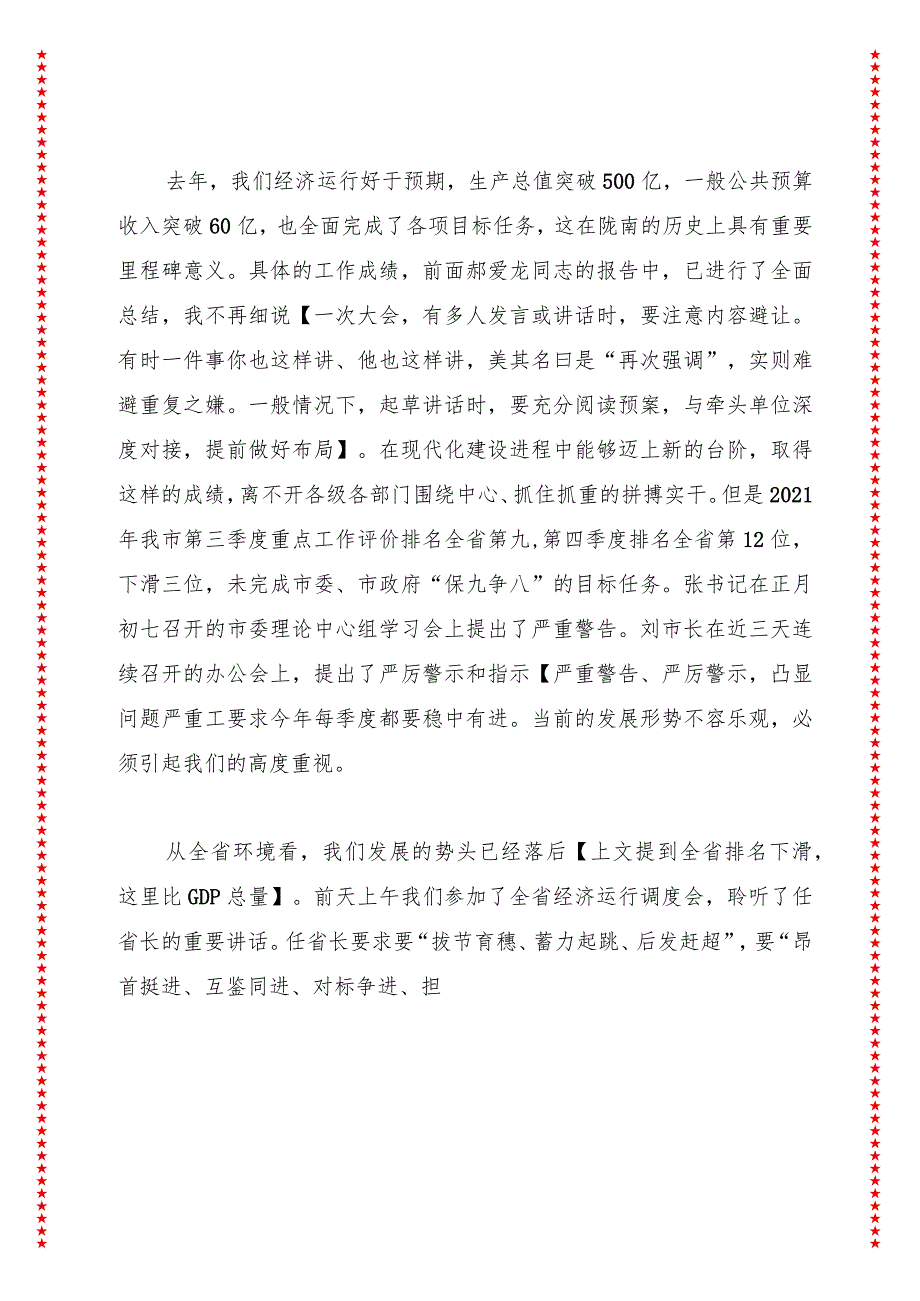 去年，我们经济运行好于预期，生产总值突破 500 亿，一般公共预算
收入突破 60 亿，也全面完成了各项目标任务，这在陇南的历史上具有重要
里程碑意义。具体的工作成绩，前面郝爱龙同志的报告中，已进行了全面
总结，我不再细说【一次大会，有多人发言或讲话时，要注意内容避让。
有时一件事你也这样讲、他也这样讲，美其名曰是“再次强调”，实则难
避重复之嫌。一般情况下，起草讲话时，要充分阅读预案，与牵头单位深
度对接，提前做好布局】。在现代化建设进程中能够迈上新的台阶，取得
这样的成绩，离不开各级各部门围绕中心、抓住抓重的拼搏实干。但是 2021
年我市第三季度重点工作评价排名全省第九,第四季度排名全省第 12 位，
下滑三位，未完成市委、市政府“保九争八”的目标任务。张书记在正月
初七召开的市委理论中心组学习会上提出了严重警告。刘市长在近三天连
续召开的办公会上，提出了严厉警示和指示【严重警告、严厉警示，凸显
问题严重工要求今年每季度都要稳中有进。当前的发展形势不容乐观，必
须引起我们的高度重视。
从全省环境看，我们发展的势头已经落后【上文提到全省排名下滑，
这里比 GDP 总量】。前天上午我们参加了全省经济运行调度会，聆听了任
省长的重要讲话。任省长要求要“拔节育穗、蓄力起跳、后发赶超”，要“昂
首挺进、互鉴同进、对标争进、担